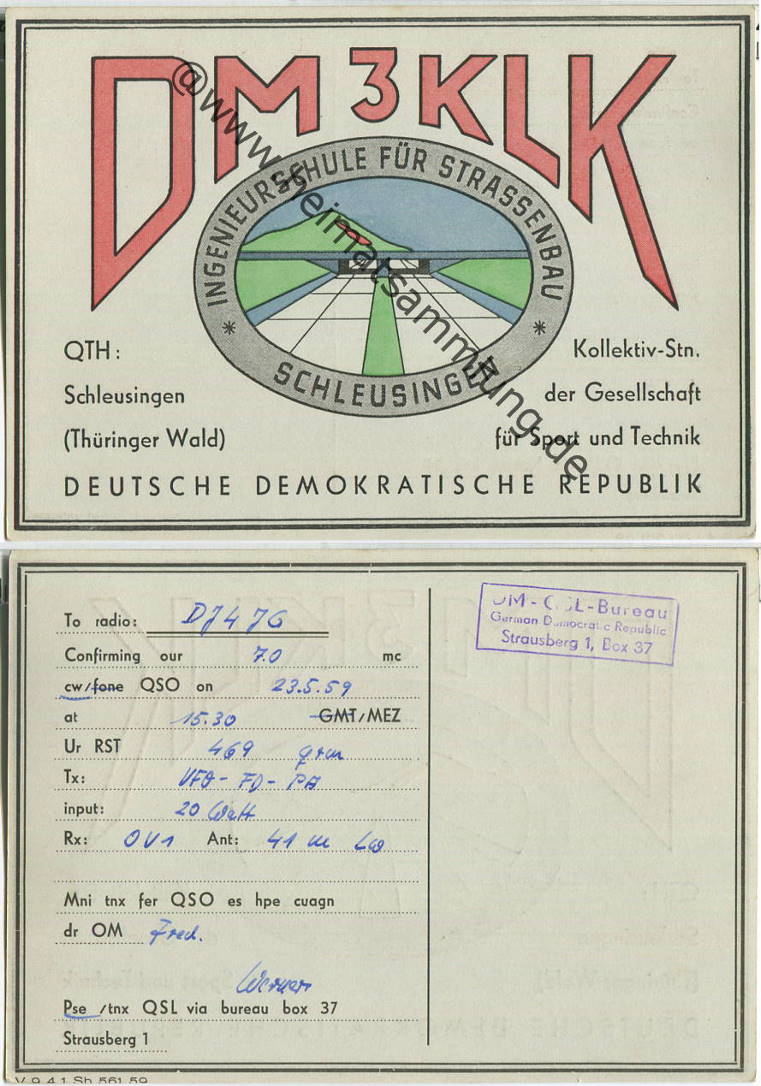 DM3KLK
INGENIEURSCHULE FÜR STRASSENBAU
* SCHLEUSINGEN *
@www.heimatsammlung.de
QTH:
Schleusingen
(Thüringer Wald)
Kollektiv-Stn.
der Gesellschaft
für Sport und Technik
DEUTSCHE DEMOKRATISCHE REPUBLIK
To radio: DJ4JG
Confirming our 7.0 mc
cw/fone QSO on 23.5.59
at 15.30 GMT/MEZ
Ur RST 469 qrm
Tx: VFO - FD - PA
input: 20 Watt
Rx: OV1 Ant: 41 m LW
Mni tnx fer QSO es hpe cuagn
dr OM Fred.
Werner
Pse/tnx QSL via bureau box 37
Strausberg 1
DM-QSL-Bureau
German Democratic Republic
Strausberg 1, Box 37
V 9 4 1 Sh 561 59